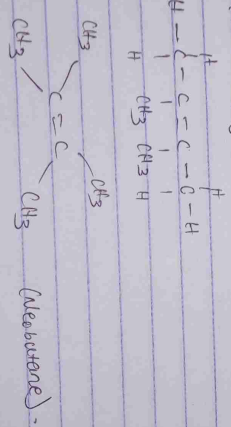 H H
H - C - C = C - C - H
H CH3 CH3 H
CH3 CH3
C = C
CH3 CH3 (Neobutane) -